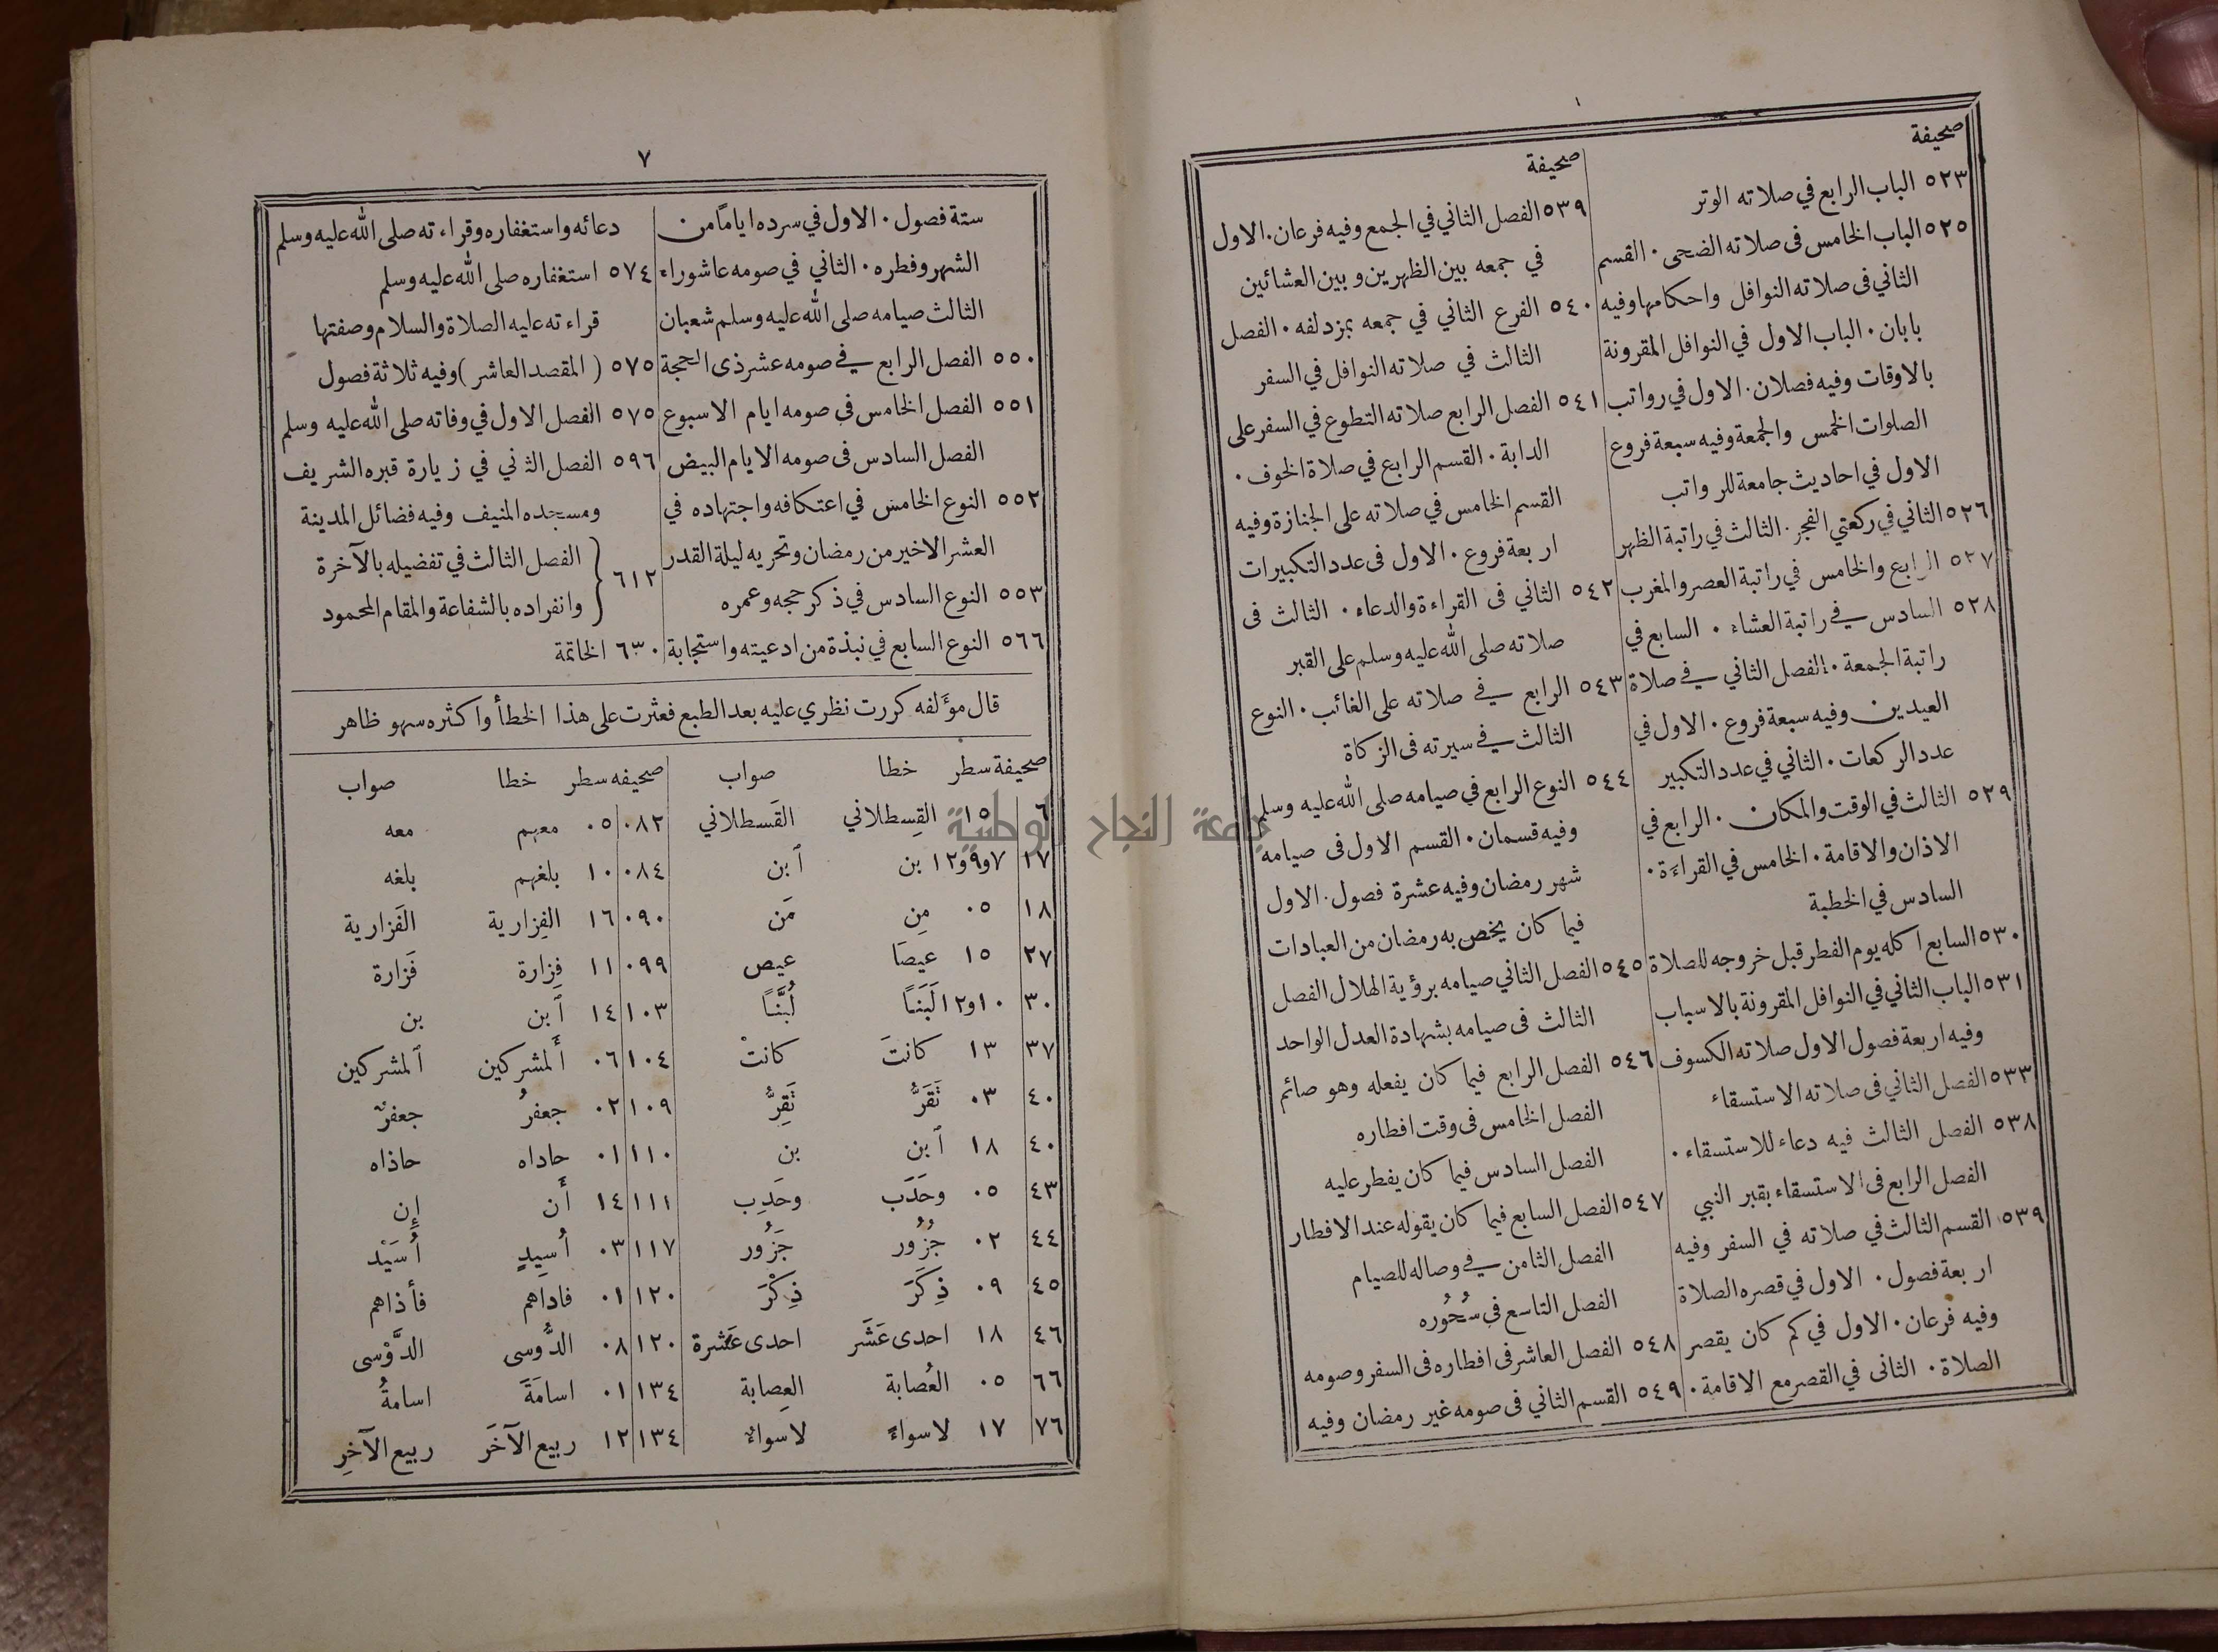 صحيفة
٥٢٣ الباب الرابع في صلاته الوتر
٥٢٥ الباب الخامس فى صلاته الضحى · القسم
الثاني فى صلاته النوافل واحكامها وفيه
بابان · الباب الاول في النوافل المقرونة
بالاوقات وفيه فصلان · الاول في رواتب
الصلوات الخمس والجمعة وفيه سبعة فروع
الاول في احاديث جامعة للرواتب
٥٢٦ الثاني في ركعتي الفجر · الثالث في راتبة الظهر
٥٢٧ الرابع والخامس في راتبة العصر والمغرب
٥٢٨ السادس في راتبة العشاء · السابع في
راتبة الجمعة · الفصل الثاني في صلاة
العيدين وفيه سبعة فروع · الاول في
عدد الركعات · الثاني في عدد التكبير
٥٢٩ الثالث في الوقت والمكان · الرابع في
الاذان والاقامة · الخامس في القراءة ·
السادس في الخطبة
٥٣٠ السابع اكله يوم الفطر قبل خروجه للصلاة
٥٣١ الباب الثاني في النوافل المقرونة بالاسباب
وفيه اربعة فصول الاول صلاته الكسوف
٥٣٣ الفصل الثاني فى صلاته الاستسقاء
٥٣٨ الفصل الثالث فيه دعاء للاستسقاء ·
الفصل الرابع فى الاستسقاء بقبر النبي
٥٣٩ القسم الثالث في صلاته في السفر وفيه
اربعة فصول · الاول في قصره الصلاة
وفيه فرعان · الاول في كم كان يقصر
الصلاة · الثانى في القصر مع الاقامة ·
صحيفة
٥٣٩ الفصل الثاني في الجمع وفيه فرعان · الاول
في جمعه بين الظهرين وبين العشائين
٥٤٠ الفرع الثاني في جمعه بمزدلفه · الفصل
الثالث في صلاته النوافل في السفر
٥٤١ الفصل الرابع صلاته التطوع في السفر على
الدابة · القسم الرابع في صلاة الخوف ·
القسم الخامس في صلاته على الجنازة وفيه
اربعة فروع · الاول فى عدد التكبيرات
٥٤٢ الثاني فى القراءة والدعاء · الثالث فى
صلاته صلى الله عليه وسلم على القبر
٥٤٣ الرابع في صلاته على الغائب · النوع
الثالث في سيرته فى الزكاة
٥٤٤ النوع الرابع في صيامه صلى الله عليه وسلم
وفيه قسمان · القسم الاول فى صيامه
شهر رمضان وفيه عشرة فصول · الاول
فيما كان يخص به رمضان من العبادات
٥٤٥ الفصل الثاني صيامه برؤية الهلال الفصل
الثالث فى صيامه بشهادة العدل الواحد
٥٤٦ الفصل الرابع فيما كان يفعله وهو صائم
الفصل الخامس فى وقت افطاره
الفصل السادس فيما كان يفطر عليه
٥٤٧ الفصل السابع فيما كان يقوله عند الافطار
الفصل الثامن في وصاله للصيام
الفصل التاسع في سُحُوره
٥٤٨ الفصل العاشر فى افطاره فى السفر وصومه
٥٤٩ القسم الثاني فى صومه غير رمضان وفيه
٧
ستة فصول · الاول في سرده اياماً من
الشهر وفطره · الثاني في صومه عاشوراء
الثالث صيامه صلى الله عليه وسلم شعبان
٥٥٠ الفصل الرابع في صومه عشر ذى الحجة
٥٥١ الفصل الخامس في صومه ايام الاسبوع
الفصل السادس فى صومه الايام البيض
٥٥٢ النوع الخامس في اعتكافه واجتهاده في
العشر الاخير من رمضان وتحريه ليلة القدر
٥٥٣ النوع السادس في ذكر حجه وعمره
٥٦٦ النوع السابع في نبذة من ادعيته واستجابة
دعائه واستغفاره وقراءته صلى الله عليه وسلم
٥٧٤ استغفاره صلى الله عليه وسلم
قراءته عليه الصلاة والسلام وصفتها
٥٧٥ (المقصد العاشر) وفيه ثلاثة فصول
٥٧٥ الفصل الاول في وفاته صلى الله عليه وسلم
٥٩٦ الفصل الثاني في زيارة قبره الشريف
ومسجده المنيف وفيه فضائل المدينة
٦١٢ الفصل الثالث في تفضيله بالآخرة
وانفراده بالشفاعة والمقام المحمود
٦٣٠ الخاتمة
قال مؤلفه كررت نظري عليه بعد الطبع فعثرت على هذا الخطأ واكثره سهو ظاهر
صحيفة سطر خطا صواب
٦ ١٥ القِسطلاني القَسطلاني
١٧ ٧و٩و١٢ بن ٱبن
١٨ ٠٥ مِن مَن
٢٧ ١٥ عيصَا عيص
٣٠ ١٠و١٢ لَبَنَاً لُبْنَاً
٣٧ ١٣ كانتَ كانتْ
٤٠ ٠٣ تَقَرُّ تَقِرُّ
٤٠ ١٨ ٱبن بن
٤٣ ٠٥ وحَدَب وحَدِب
٤٤ ٠٢ جُزُور جَزُور
٤٥ ٠٩ ذِكَرَ ذِكْرَ
٤٦ ١٨ احدى عَشَر احدى عَشرة
٦٦ ٠٥ العُصابة العِصابة
٧٦ ١٧ لاسواءً لاسواءٌ
صحيفه سطر خطا صواب
٠٨٢ ٠٥ معهم معه
٠٨٤ ١٠ بلغهم بلغه
٠٩٠ ١٦ الفِزارية الفَزارية
٠٩٩ ١١ فِزارة فَزارة
١٠٣ ١٤ ٱبن بن
١٠٤ ٠٦ أَلمشركين ٱلمشركين
١٠٩ ٠٢ جعفرُ جعفرٌ
١١٠ ٠١ حاداه حاذاه
١١١ ١٤ أَن إِن
١١٧ ٠٣ أسِيدٍ أُسَيْد
١٢٠ ٠١ فاداهم فأذاهم
١٢٠ ٠٨ الدُّوسى الدَّوْسى
١٣٤ ٠١ اسامَةَ اسامةُ
١٣٤ ١٢ ربيع الآخَر ربيع الآخِر
جامعة النجاح الوطنية